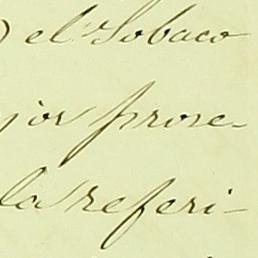 ) el Tobaco
jor prose-
la referi-